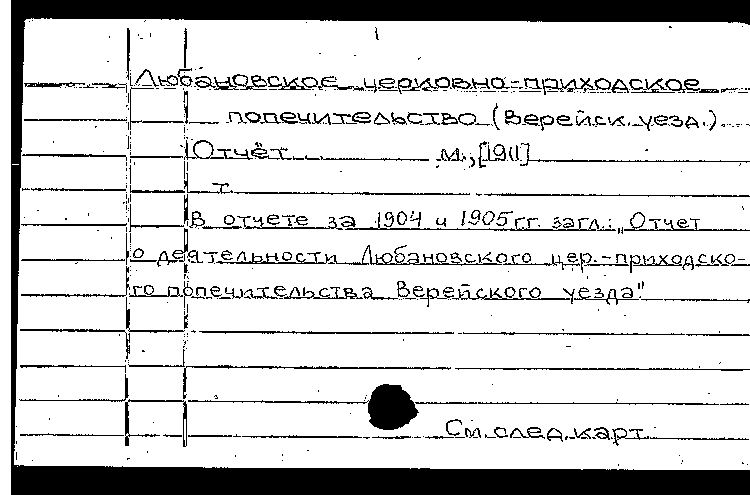 Любановское церковно-приходское
попечительство (Верейск. уезд.)
Отчёт М., [1911]
т.
В отчете за 1904 и 1905 г.г. загл.: „Отчет
о деятельности Любановского цер.-приходско-
го попечительства Верейского уезда".
См. след. карт.